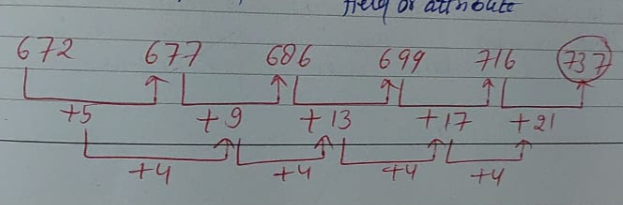 Field or attribute
672 677 686 699 716 737
+5 +9 +13 +17 +21
+4 +4 +4 +4